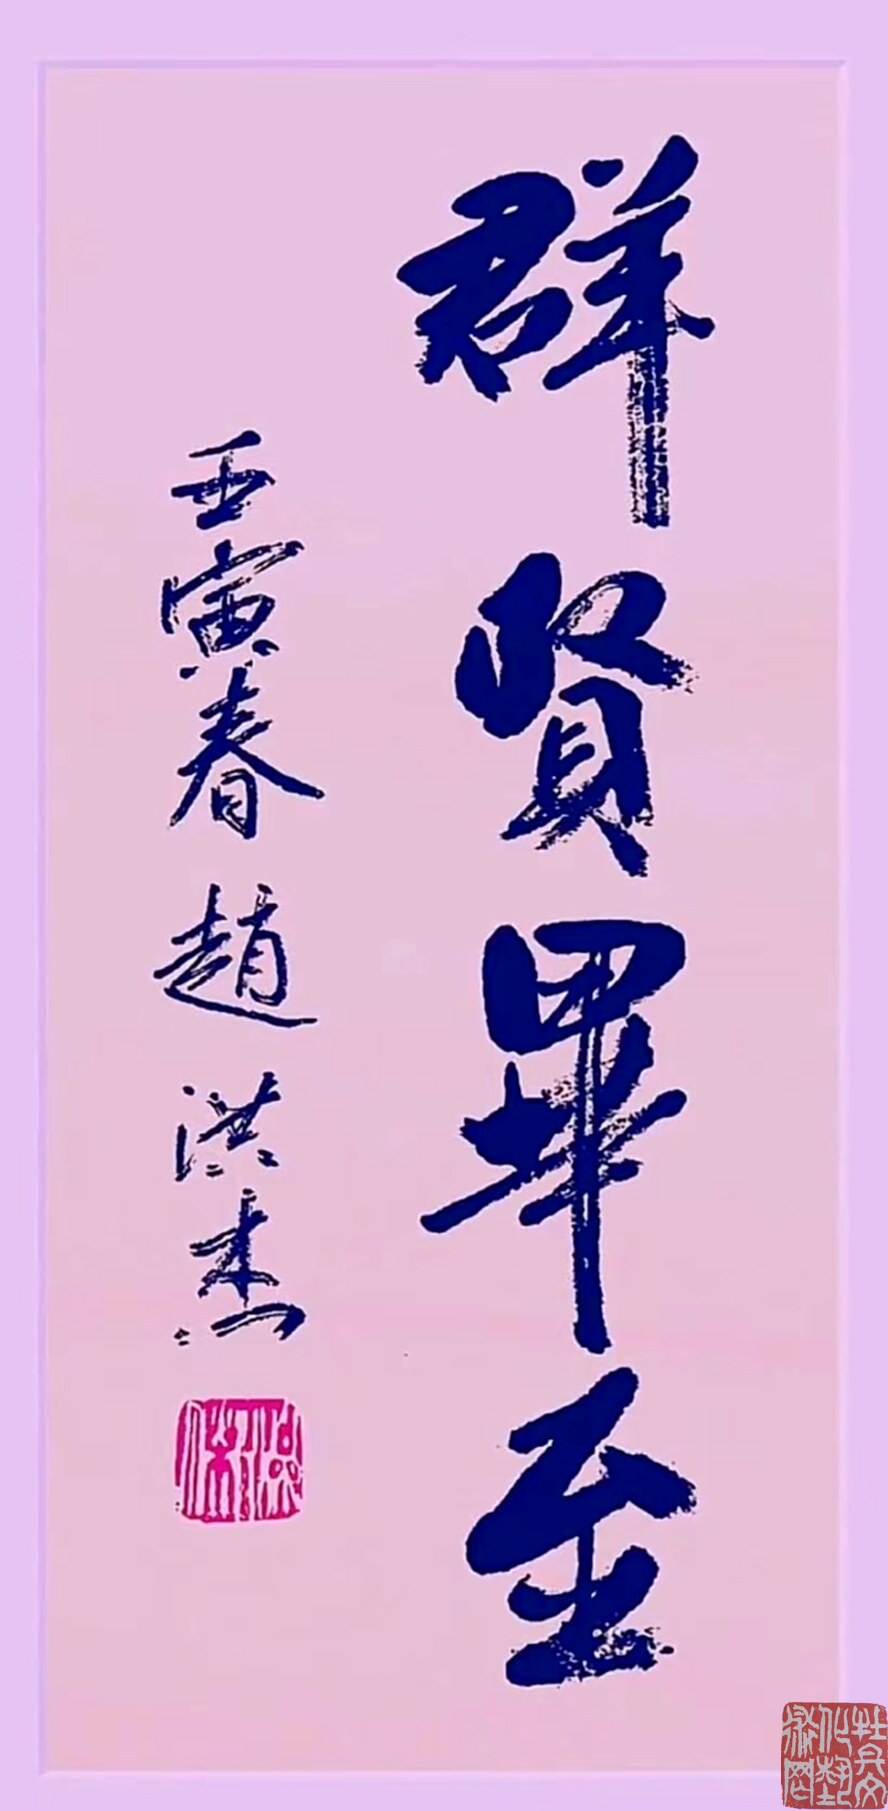 群賢畢至
壬寅春趙洪杰